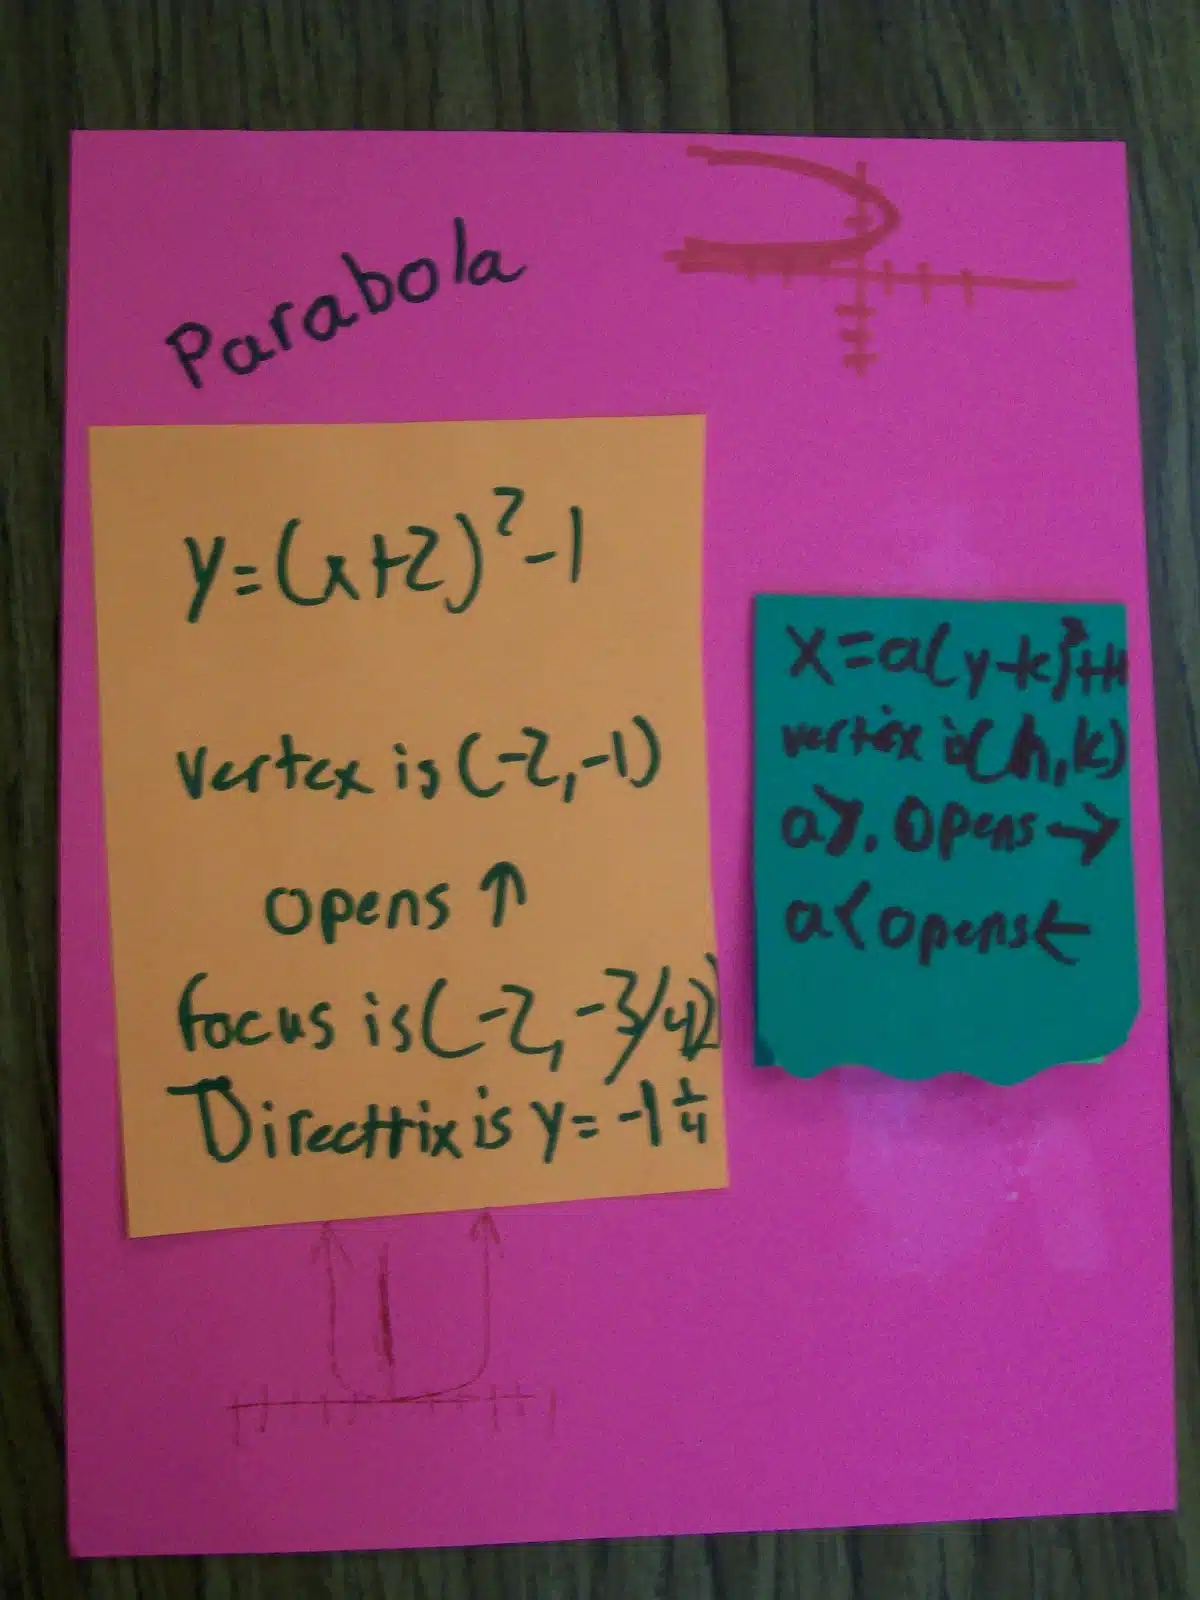 Parabola
y=(x+2)²-1
vertex is (-2,-1)
opens ↑
focus is (-2, -3/4)
Directtrix is y= -1 1/4
x=a(y+k)²+h
vertex is (h,k)
a>. opens →
a< opens ←